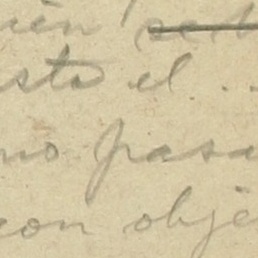 ién
sto el ..
no pasa
con obje